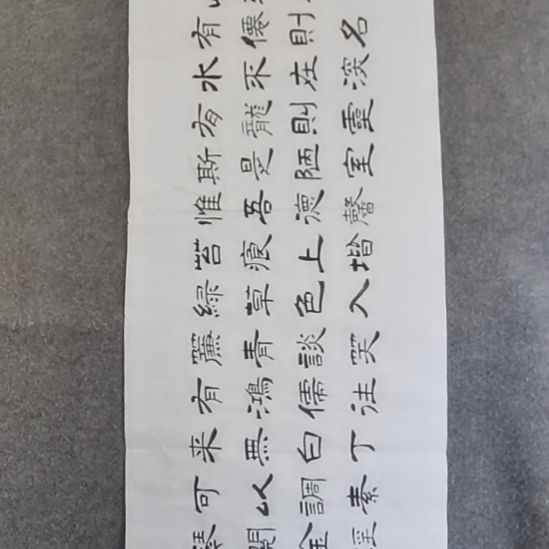 有僊則名
水不在深
有龍則靈
斯是陋室
惟吾德馨
苔痕上堦
緑草色入
簾青談笑
有鴻儒往
来無白丁
可以調素
琴閱金